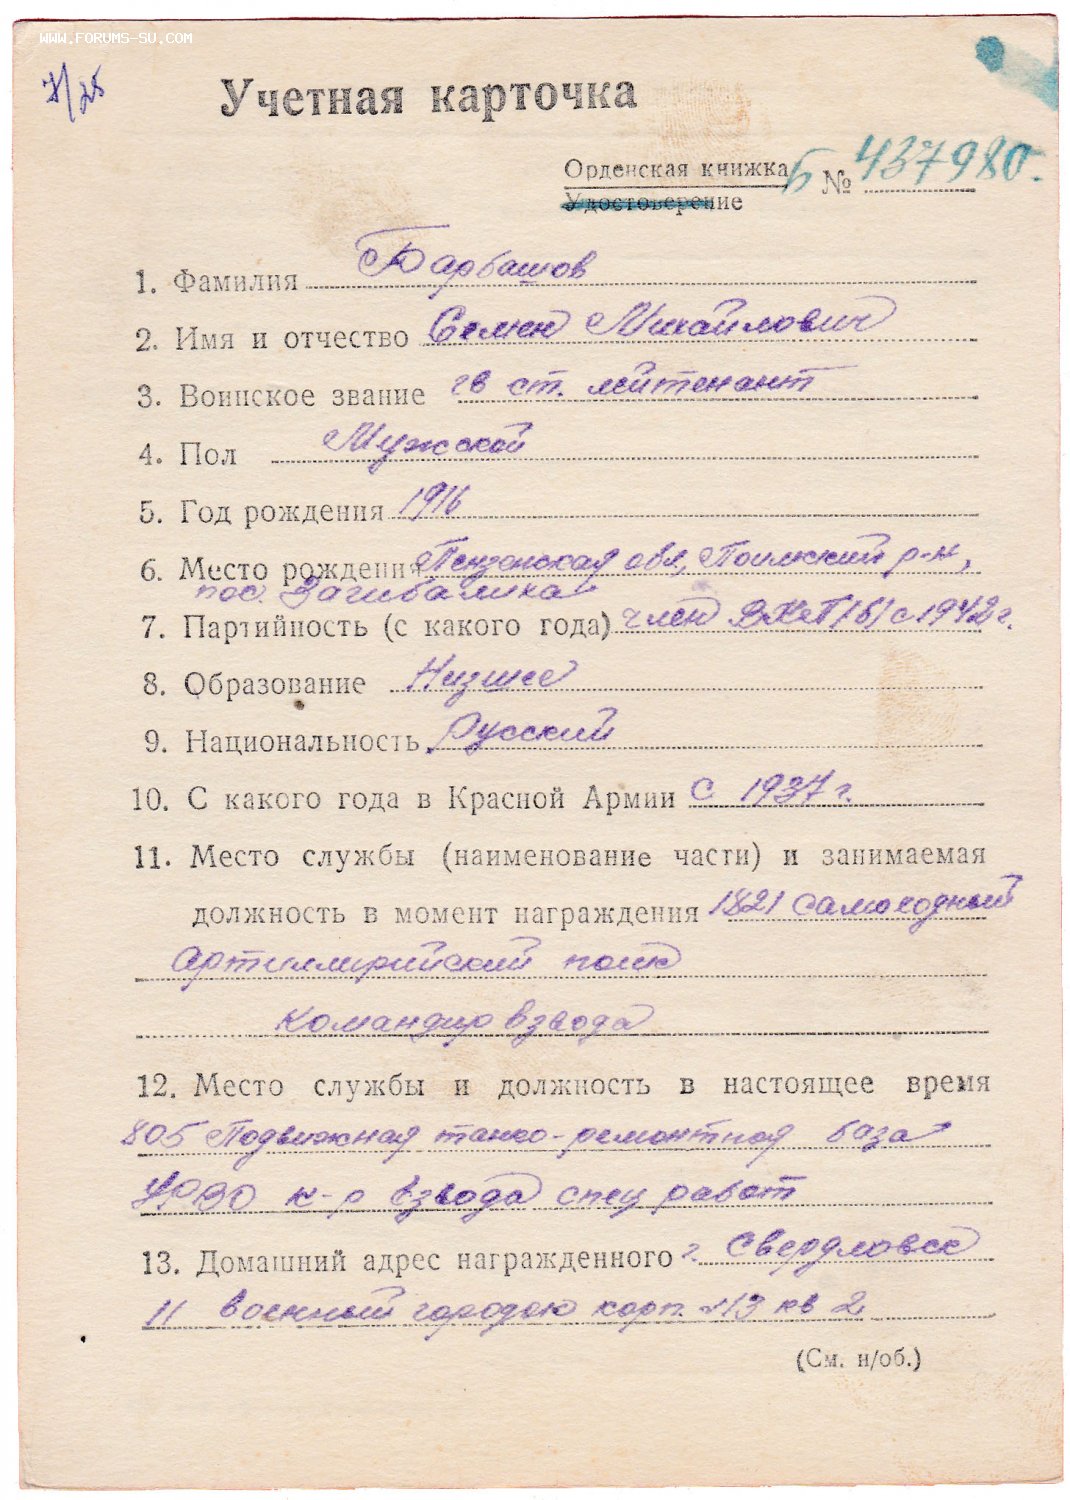 www.forums-su.com
7/25
Учетная карточка
Орденская книжка Б № 437980.
Удостоверение
1. Фамилия Барбашов
2. Имя и отчество Семен Михайлович
3. Воинское звание гв ст. лейтенант
4. Пол Мужской
5. Год рождения 1916
6. Место рождения Пензенская обл, Поимский р-н,
пос. Загибаловка
7. Партийность (с какого года) член ВКП(б) с 1942 г.
8. Образование Низшее
9. Национальность Русский
10. С какого года в Красной Армии с 1937 г.
11. Место службы (наименование части) и занимаемая
должность в момент награждения 1821 самоходный
артиллерийский полк
командир взвода
12. Место службы и должность в настоящее время
805 Подвижная танко-ремонтная база
к-р взвода спец работ
13. Домашний адрес награжденного г. Свердловск
11 военный городок корп. №13 кв 2
(См. н/об.)